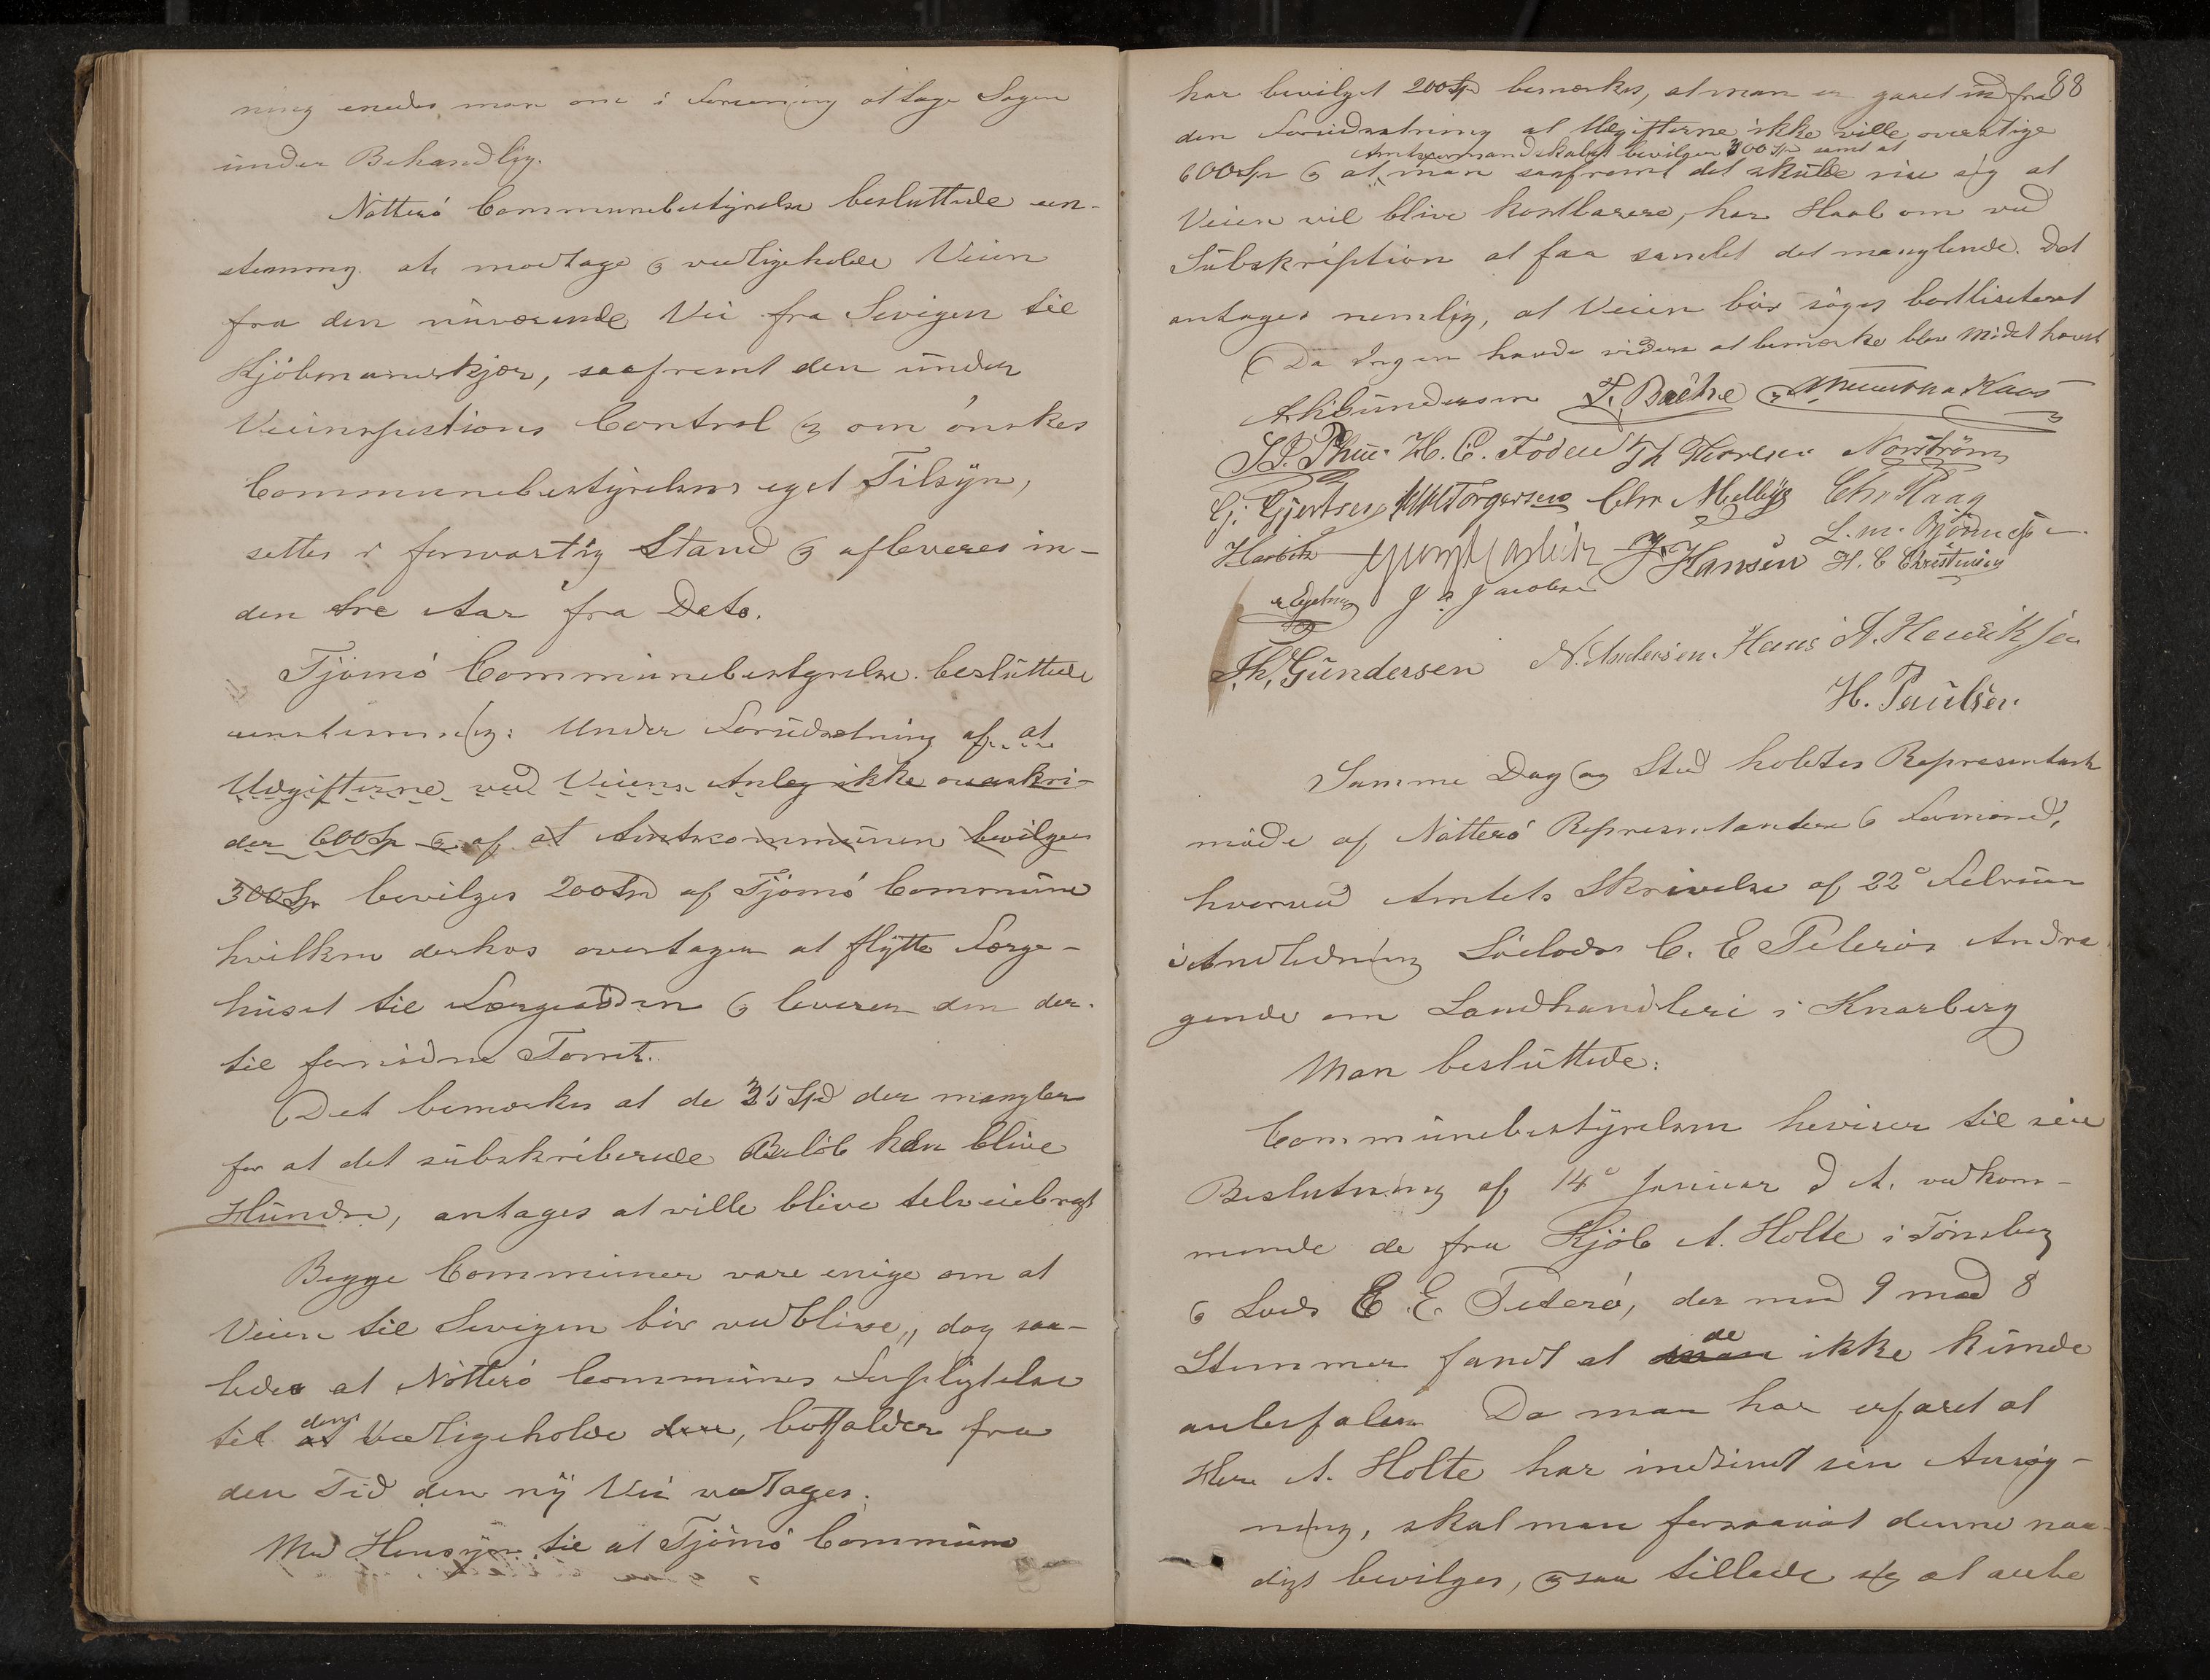 ning enedes man om i Forening at tage Sagen
under Behandlig.
Nötterö Communebestyrelse besluttede een-
stemmig at modtage & vedligeholde Veien
fra den nuværende Vei fra Sevigen til
Kjöbmanskjær, saafremt den under
Veiinspections Control og om önskes
Communebestyrelsens eget Tilsyn,
settes i forsvarlig Stand & afleveres in-
den tre Aar fra Dato.
Tjömö Communebestyrelse besluttede
eenstemmig: Under Forudsætning af at
Udgifterne ved Veiens Anleg ikke overskri-
der 600 Sp & af at Amtscommunen bevilges
300 Sp bevilges 200 Spd af Tjömö Commune
hvilken derhos overtager at flytte Færge-
huset til Færgeodden & leverer den der-
til fornödne Tomt.
Det bemærkes at de 35 Spd der mangler
for at det subskriberede Belöb kan blive
Hundre, antages at ville blive tilveiebragt
Begge Communer vare enige om at
Veien til Sevigen bör vedblive, dog saa-
ledes at Nötterö Communes Forpligtelse
til at dens Vedligeholde den, bortfalder fra
den Tid den ny Vei modtages.
Med Hensyn til at Tjömö Commune
88
har bevilget 200 Spd bemærkes, at man er gaaet ud fra
den Forudsætning at Udgifterne ikke ville overstige
Amtsformandskabet bevilger 300 Spd samt at
600 Sp & at man saafremt det skulde vise sig at
Veien vil blive kostbarere, har Haab om ved
Subskription at faa samlet det manglende. Det
antages nemlig, at Veien bör söges bortliciteret
Da Ingen havde videre at bemærke blev Mödet hævet
Gundersen F. Bache Kaas
H. C. Foden Th Thoresen Norström
G. Gjertsen Torgersen Chr Melbye Chr Haag
L. M. Björnes
J. Hansen H. C Christensen
J. Jacobsen
Th. Gundersen N. Andersen Hans A. Henriksen
H. Paulsen
Samme Dag og Sted holdtes Representant
möde af Nötterö Representantere & Formænd,
hvorved Amtets Skrivelse af 22de Februar
i Andledning Lods C. E Peterös Andra
gende om Landhandleri i Knarberg
Man besluttede:
Communebestyrelsen heviser til sin
Beslutning af 14de Januar d A. vedkom-
mende de fra Kjöb A. Holte i Tönsberg
& Lods E. E. Peterö, der med 9 mod 8
Stemmer fandt at man de ikke kunde
anbefales Da man har erfaret at
Herr A. Holte har indsendt sin Ansög-
ning, skal man forsaavidt denne naa-
digst bevilges, ogsaa tillade sig at anbe